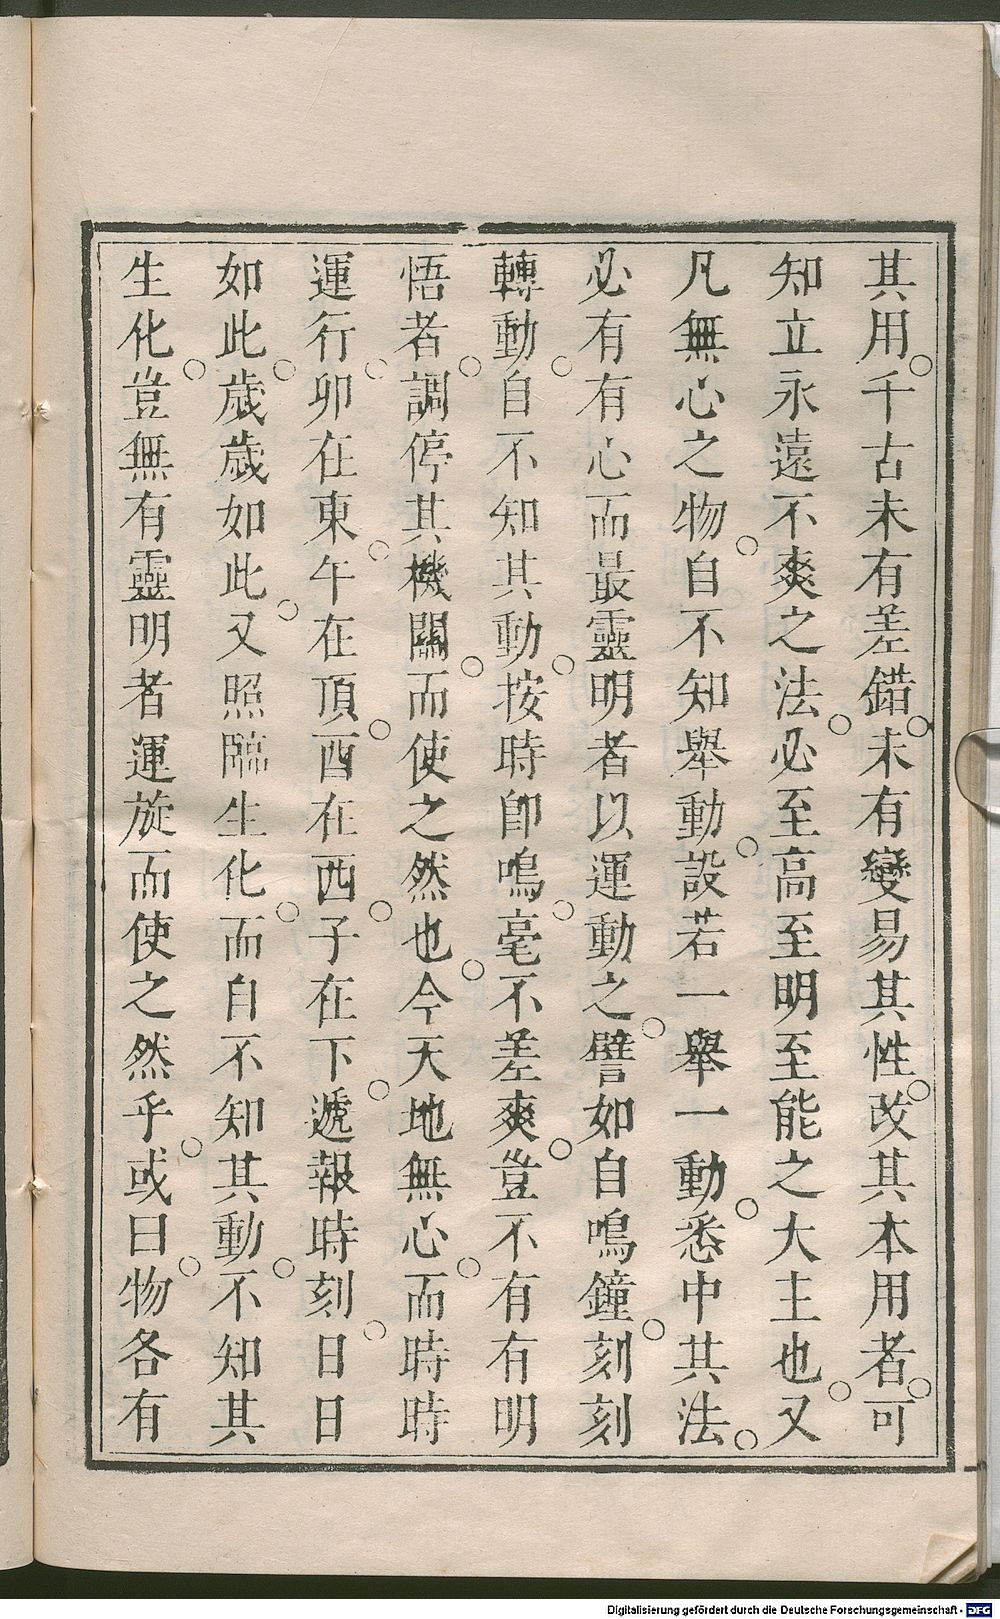 其用。千古未有差錯。未有變易其性。改其本用者。可
知立永遠不爽之法。必至高至明至能之大主也。又
凡無心之物。自不知舉動。設若一舉一動。悉中其法。
必有有心而最靈明者以運動之。譬如自鳴鐘。刻刻
轉動。自不知其動。按時卽鳴。毫不差爽。豈不有有明
悟者。調停其機關。而使之然也。今天地無心。而時時
運行。卯在東。午在頂。酉在西。子在下。遞報時刻。日日
如此。歲歲如此。又照臨生化。而自不知其動。不知其
生化。豈無有靈明者運旋而使之然乎。或曰。物各有
Digitalisierung gefördert durch die Deutsche Forschungsgemeinschaft - DFG